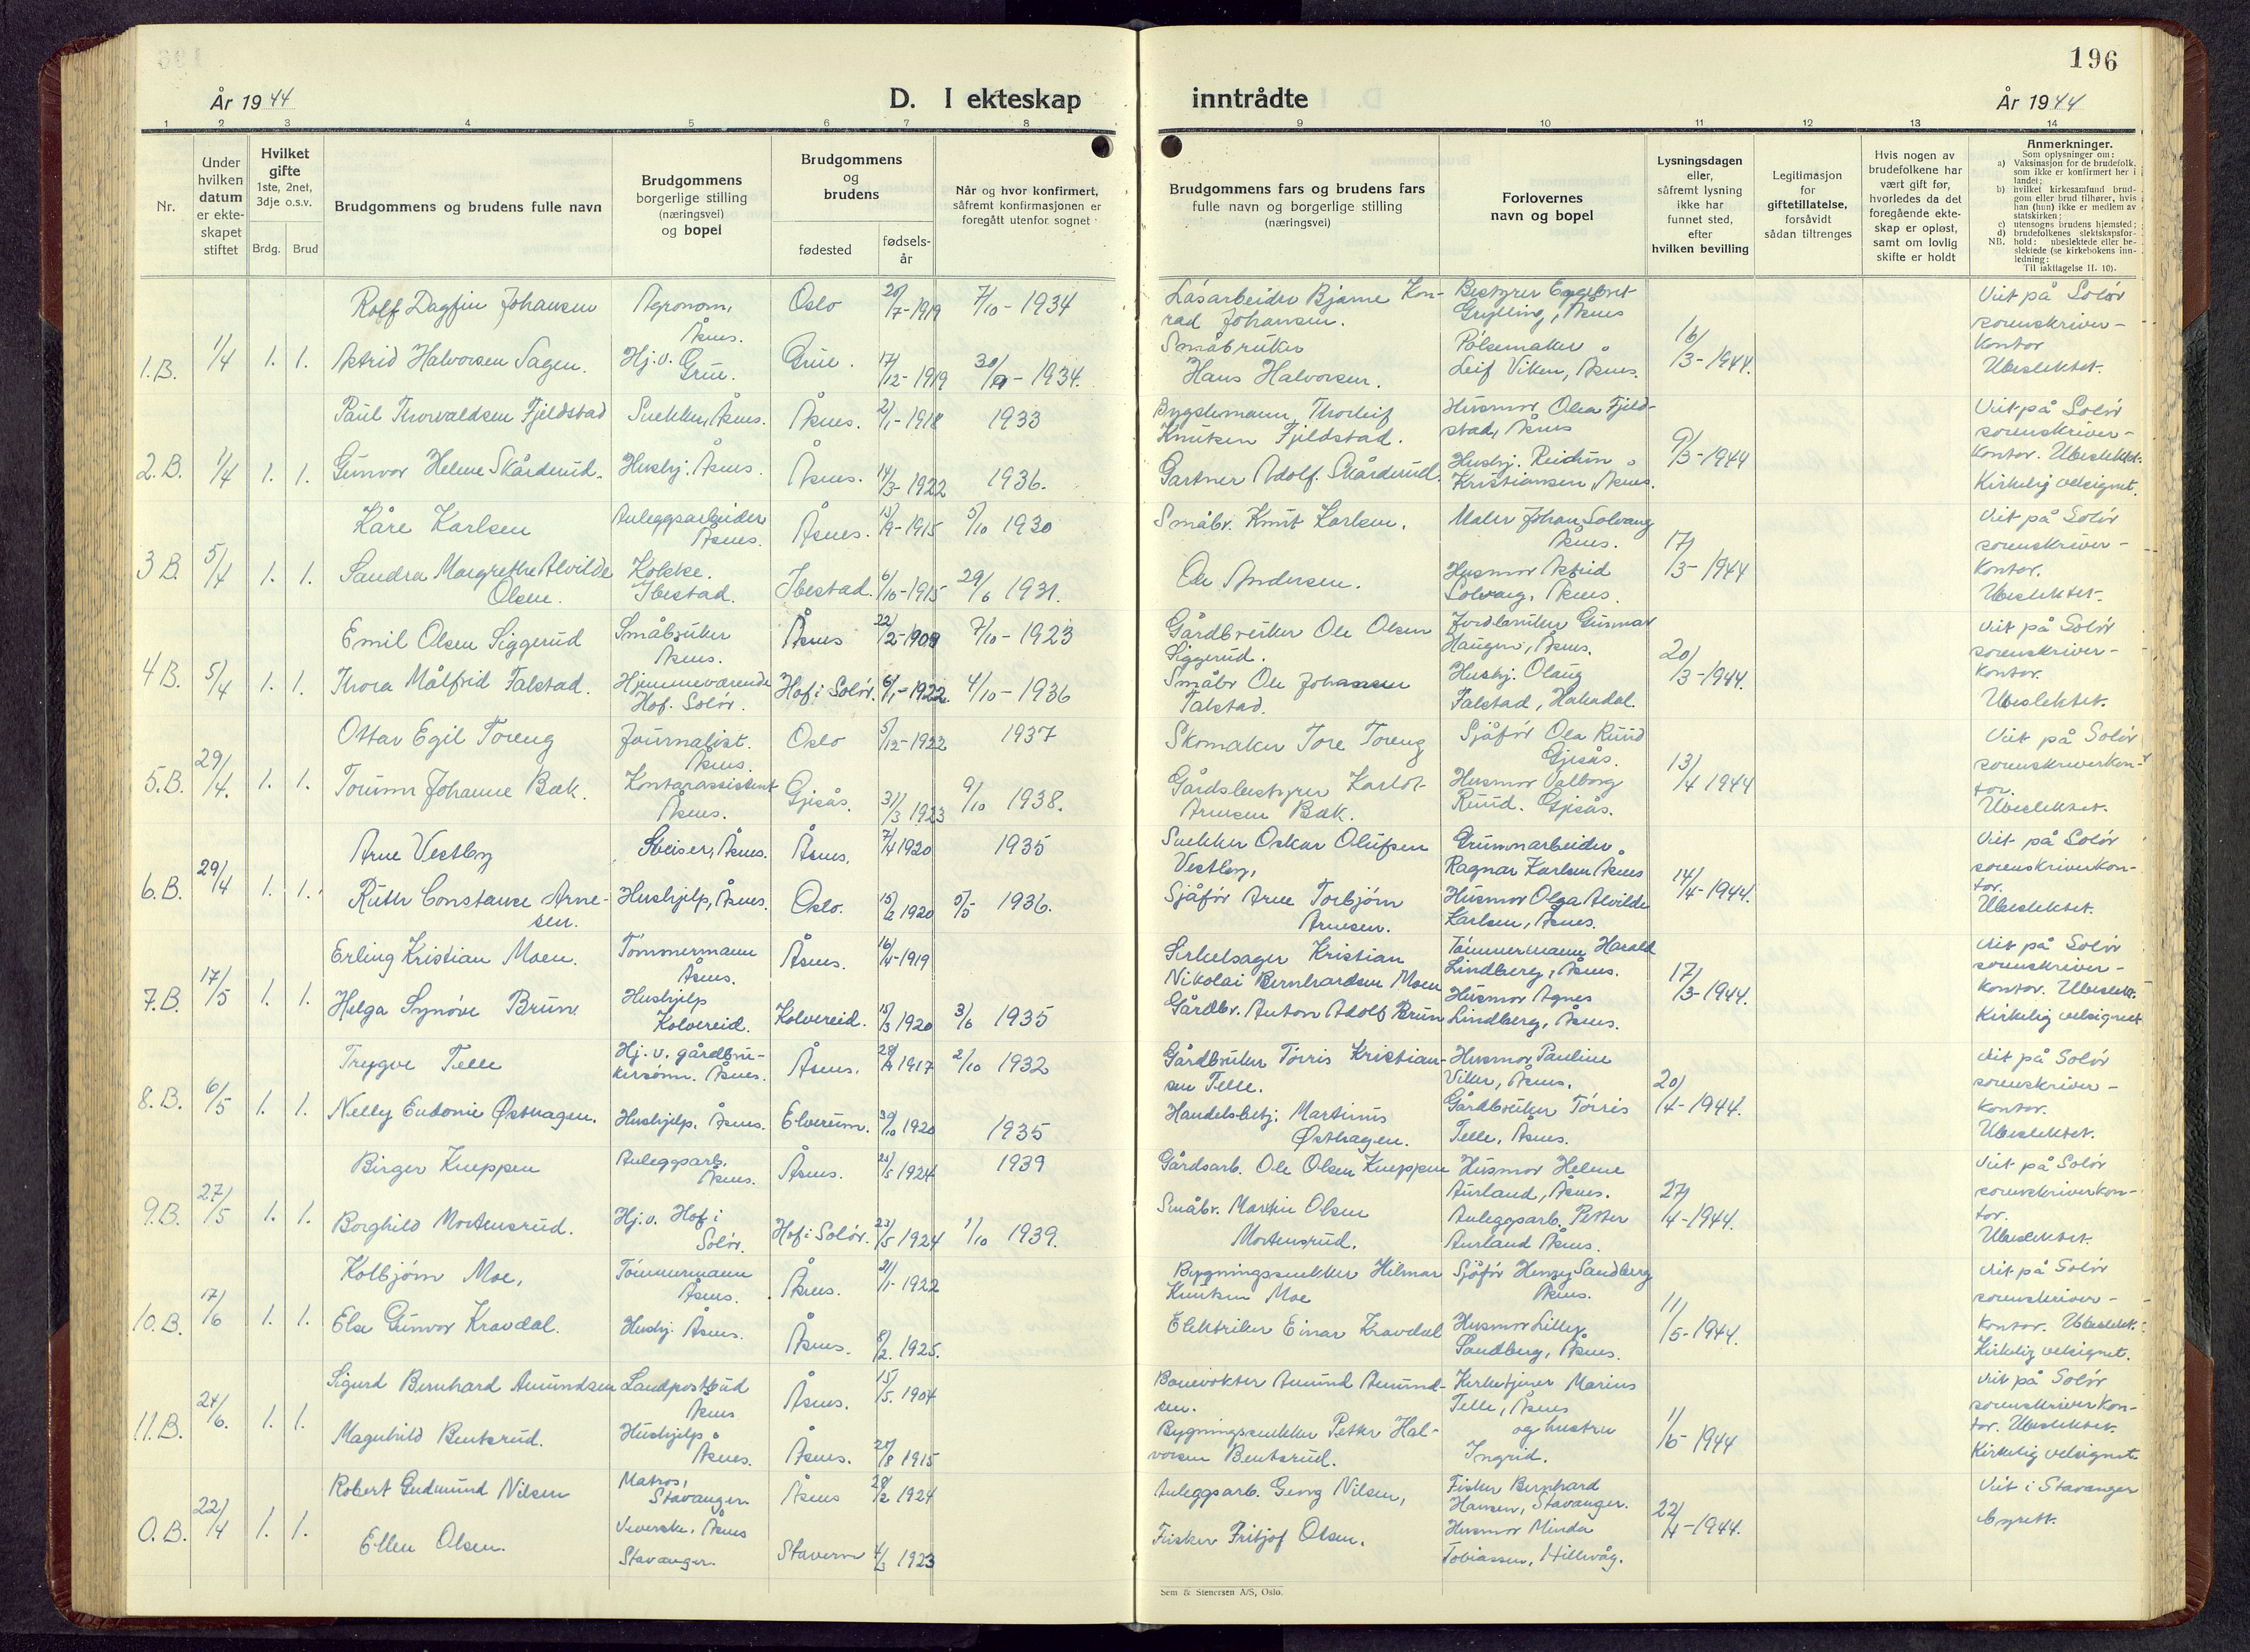 196
År 1944
D. I ekteskap
inntrådte
År 1944
1 2 3 4 5 6 7 8 9 10 11 12 13 14
Nr.
Under
hvilken
datum
er ekte-
skapet
stiftet
Hvilket
gifte
1ste, 2net,
3dje o.s.v.
Brdg. Brud
Brudgommens og brudens fulle navn
Brudgommens
borgerlige stilling
(næringsvei)
og bopel
Brudgommens
og
brudens
fødested
fødsels-
år
Når og hvor konfirmert,
såfremt konfirmasjonen er
foregått utenfor sognet
Brudgommens fars og brudens fars
fulle navn og borgerlige stilling
(næringsvei)
Forlovernes
navn og bopel
Lysningsdagen
eller,
såfremt lysning
ikke har
funnet sted,
efter
hvilken bevilling
Legitimasjon
for
giftetillatelse,
forsåvidt
sådan tiltrenges
Hvis nogen av
brudefolkene har
vært gift før,
hvorledes da det
foregående ekte-
skap er opløst,
samt om lovlig
skifte er holdt
Anmerkninger.
Som oplysninger om:
a) Vaksinasjon for de brudefolk,
som ikke er konfirmert her i
landet;
b) hvilket kirkesamfund brud-
gom eller brud tilhører, hvis
han (hun) ikke er medlem av
statskirken;
c) utensogns brudens hjemsted;
d) brudefolkenes slektskapsfor-
NB. hold: ubeslektede eller be-
slektede (se kirkebokens inn-
ledning:
Til iakttagelse II. 10).
1.B. 1/4 1. 1.
Rolf Dagfin Johansen
Agronom,
Åsnes.
Oslo 20/7-1919 7/10-1934
Låsarbeider Bjarne Kon-
rad Johansen.
Bestyrer Engebret
Grybling, Åsnes
Astrid Halvorsen Sagen.
Hj.v.
Grue.
Grue. 17/12-1919 30/9-1934.
Småbruker
Hans Halvorsen.
Pølsemaker
Leif Viken, Åsnes.
16/3-1944.
Viet på Solør
sorenskriver-
kontor
Ubeslektet.
2.B. 1/4 1. 1.
Paul Thorvaldsen Fjeldstad
Snekker, Åsnes. Åsnes. 2/1-1918 1933
Bygdemann, Thorleif
Knutsen Fjeldstad.
Husmor Olea Fjeld-
stad, Åsnes
Gunvor Helene Skårderud.
Hushj. Åsnes. Åsnes. 14/3-1922 1936.
Gartner Adolf Skårderud.
Hushj. Reidun
Kristiansen, Åsnes.
9/3-1944
Viet på Solør
sorenskriver-
kontor. Ubeslektet.
Kirkelig velsignet.
3 B. 5/4 1. 1.
Kåre Karlsen
Anleggsarbeider
Åsnes.
Åsnes. 13/9-1915 5/10 1930
Småbr. Knut Karlsen.
Maler Johan Solvang
Åsnes.
Sandra Margrethe Alvilde
Olsen.
Kokke.
Ibestad.
Ibestad. 6/10-1915 29/6 1931.
Ole Andersen.
Husmor Astrid
Solvang, Åsnes.
17/3-1944
Viet på Solør
sorenskriver-
kontor.
Ubeslektet.
4 B. 5/4 1. 1.
Emil Olsen Siggerud
Småbruker
Åsnes.
Åsnes 22/2-1909 7/10-1923
Gårdbruker Ole Olsen
Siggerud.
Jordbruker Gunnar
Haugen, Åsnes.
Thora Målfrid Falstad.
Hjemmeværende
Hof. Solør.
Hof i Solør. 6/1-1922 4/10-1936
Småbr Ole Johansen
Falstad.
Hushj. Olaug
Falstad, Hakadal.
20/3-1944.
Viet på Solør
sorenskriver-
kontor.
Ubeslektet.
5.B. 29/4. 1. 1.
Ottar Egil Toreng
Journalist.
Åsnes.
Oslo 5/12-1922 1937
Skomaker Tore Toreng
Sjåfør Ola Ruud
Gjesås.
Torunn Johanne Bæk.
Kontorassistent
Åsnes.
Gjesås. 31/3 1923 9/10 1938.
Gårdsbestyrer Karlot
Arnesen Bæk.
Husmor Valborg
Ruud. Gjesås.
13/4 1944
Viet på Solør
sorenskriverkon-
tor.
Ubeslektet.
6.B. 29/4 1. 1.
Arne Vestby
Gleiser, Åsnes. Åsnes. 7/4 1920 1935
Snekker Oskar Olufsen
Vestby,
Grunnarbeider
Ragnar Karlsen Åsnes
Ruth Constance Arne-
sen.
Hushjelp, Åsnes. Oslo. 15/2 1920 5/5 1936.
Sjåfør Arne Torbjørn
Arnesen.
Husmor Olga Alvilde
Karlsen, Åsnes.
14/4-1944.
Viet på Solør
sorenskriverkon-
tor.
Ubeslektet.
7.B. 17/5 1. 1.
Erling Kristian Moen.
Tømmermann
Åsnes.
Åsnes. 16/4-1919
Sirkelsager Kristian
Nikolai Bernhardsen Moen
Tømmermann Harald
Lindberg, Åsnes.
Helga Synøve Brun
Hushjelp
Kolvereid.
Kolvereid. 15/3 1920 3/6 1935
Gårdbr. Anton Adolf Brun
Husmor Agnes
Lindberg, Åsnes.
17/3-1944.
Viet på Solør
sorenskriver-
kontor. Ubeslekt.
Kirkelig velsignet
8.B. 6/5 1. 1.
Trygve Telle
Hj. v. gårdbru-
kersønn. Åsnes.
Åsnes. 1917 2/10 1932
Gårdbruker Tørris Kristian-
sen Telle.
Husmor Pauline
Viker, Åsnes.
Nelly Eudonie Østhagen.
Hushjelp, Åsnes. Elverum. 30/10 1920 1935
Handelsbetj. Martinus
Østhagen.
Gårdbruker Tørris
Telle, Åsnes.
20/4-1944.
Viet på Solør
sorenskriver-
kontor.
Ubeslektet.
9.B. 27/5 1. 1.
Birger Kneppen
Anleggsarb.
Åsnes.
Åsnes. 23/5 1924 1939
Gårdsarb. Ole Olsen Kneppen
Husmor Helene
Aurland, Åsnes.
Borghild Mortensrud.
Hj.v. Hof i
Solør.
Hof i Solør. 23/5 1924 1/10 1939.
Småbr. Martin Olsen
Mortensrud.
Anleggsarb. Petter
Aurland Åsnes.
27/4-1944.
Viet på Solør
sorenskriverkon-
tor.
Ubeslektet.
10.B. 17/6 1. 1.
Kolbjørn Moe,
Tømmermann
Åsnes.
Åsnes. 21/1-1922
Bygningssnekker Hilmar
Knutsen Moe
Sjåfør Henry Sandberg
Åsnes.
Else Gunvor Kravdal.
Hushj. Åsnes. Åsnes. 8/2. 1925.
Elektriker Einar Kravdal
Husmor Lilly
Sandberg, Åsnes.
11/5-1944.
Viet på Solør
sorenskriver-
kontor. Ubeslekt.
Kirkelig velsignet.
11.B. 24/6. 1. 1.
Sigurd Bernhard Amundsen
Landpostbud
Åsnes
Åsnes. 15/5. 1904
Banevokter Amund Amund-
sen.
Kirketjener Marius
Telle, Åsnes
Magnhild Bentsrud.
Hushjelp
Åsnes.
Åsnes. 20/8 1915
Bygningssnekker Petter Hal-
vorsen Bentsrud.
og hustru
Ingrid.
1/6-1944
Viet på Solør
sorenskriverkon-
tor. Ubeslektet.
Kirkelig velsignet.
0.B. 22/4 1. 1.
Robert Gudmund Nilsen
Matros,
Stavanger.
Åsnes 28/2 1924
Anleggsarb. Georg Nilsen,
Fisker Bernhard
Hansen, Stavanger.
Ellen Olsen.
Veverske, Åsnes
Stavanger.
Stavern 4/3 1923
Fisker Fritjof Olsen.
Husmor Minda
Tobiassen, Hillevåg.
22/4-1944.
Viet i Stavanger
byrett.
Sem & Stenersen A/S, Oslo.